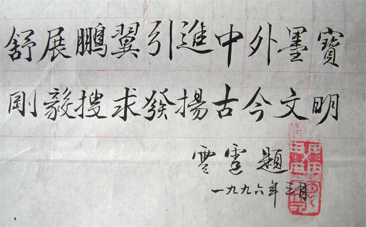 舒展鵬翼引進中外墨寶
剛毅搜求發揚古今文明
雲霆題
一九九六年三月